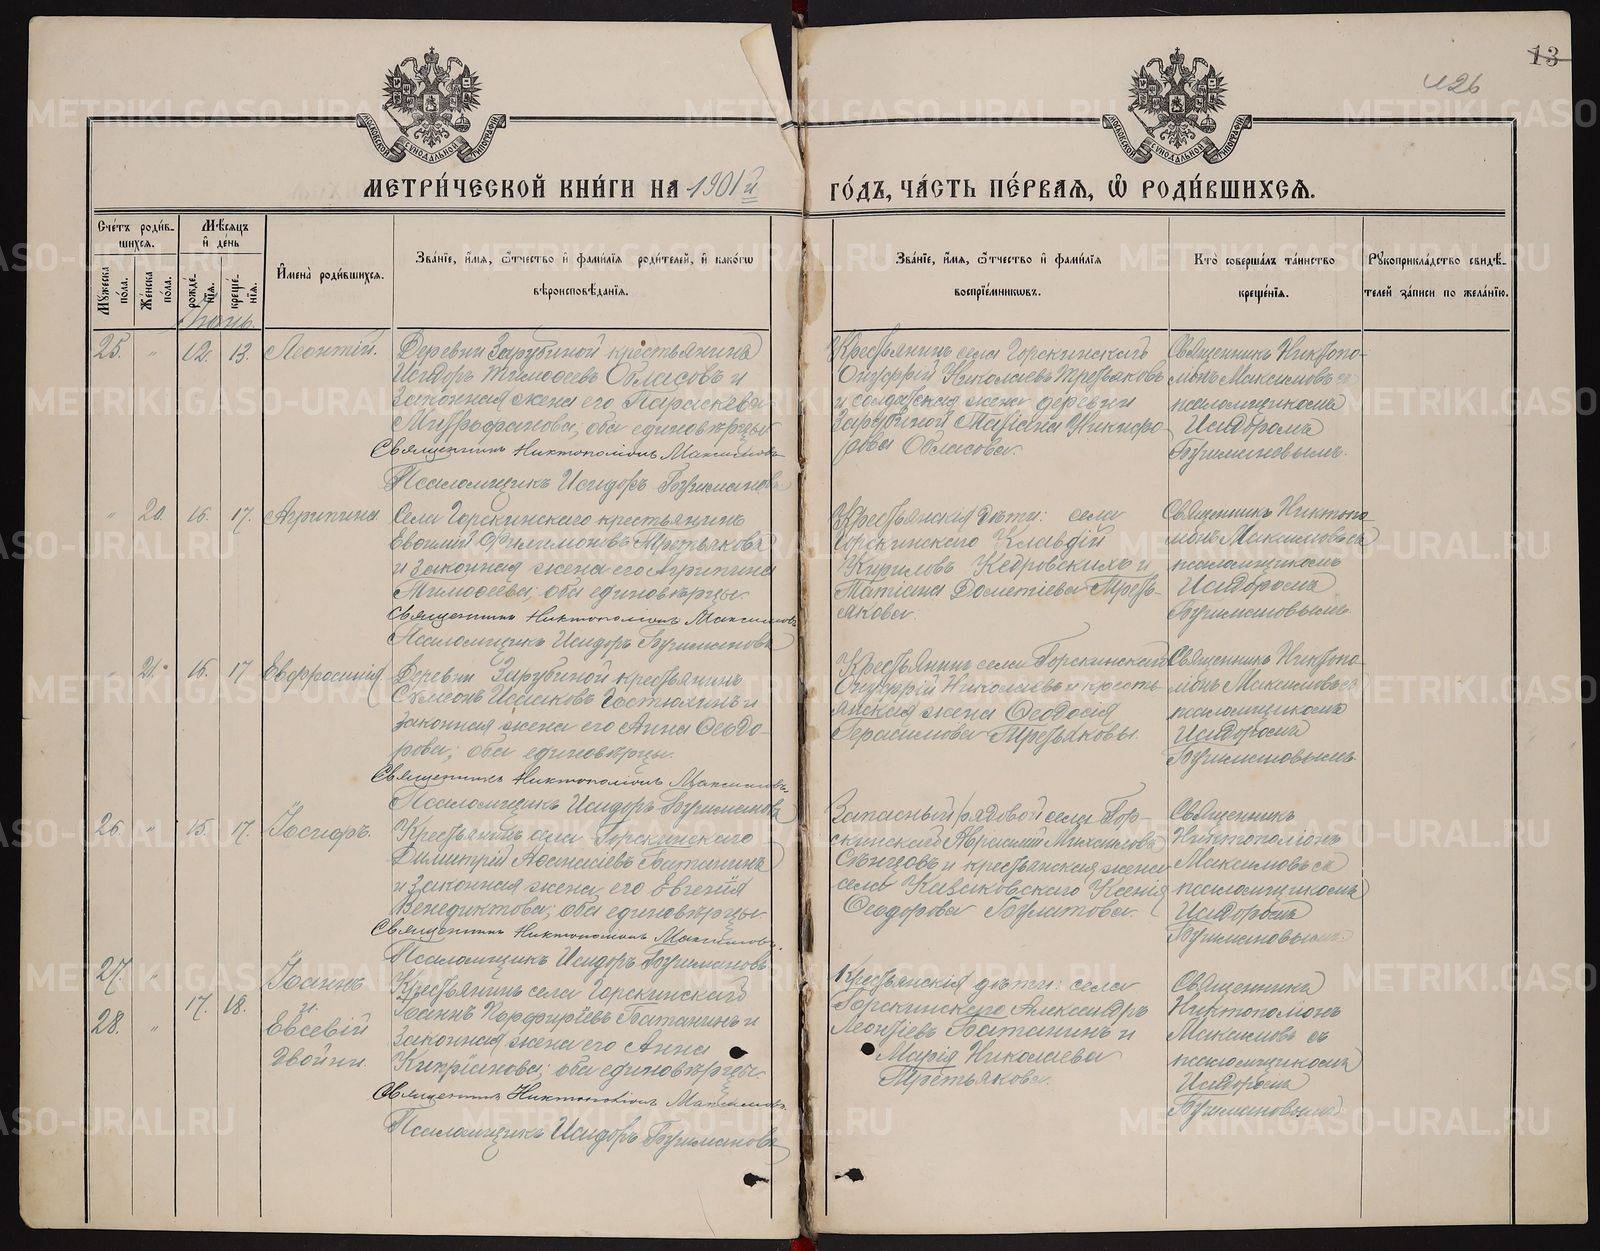 13
426
МОСКОВСКОЙ СУНОДАЛЬНОЙ ТИПОГРАФІИ
МОСКОВСКОЙ СУНОДАЛЬНОЙ ТИПОГРАФІИ
МЕТРИ́ЧЕСКОЙ КНИ́ГИ НА 1901й ГО́ДЪ, ЧА́СТЬ ПЕ́РВАЯ, Ѡ РОДИ́ВШИХСЯ.
Сче́тъ роди́в-
шихся.
Мꙋжеска по́ла.
Же́нска пола.
Мѣ́сяцъ и де́нь
рожде́-нїя.
креще́-нїя.
Имена̀ роди́вшихся.
Зва́нїе, и́мя, ѻ́тчество и фами́лїя роди́телей, и како́гѡ
вѣроисповѣ́данїя.
Зва́нїе, и́мя, ѻ́тчество и фами́лїя
воспрїе́мниковъ.
Кто̀ соверша́лъ та́инство
креще́нїя.
Рꙋкоприкла́дство свидѣ́-
телей за́писи по жела́нїю.
Іюнь.
25. " 12. 13. Леонтій.
Деревни Зарубиной крестьянинъ
Исидоръ Тимоѳеевъ Обласовъ и
законная жена его Параскева
Митрофанова, оба единовѣрцы
Священникъ Никтополіонъ Максимовъ
Псаломщикъ Исидоръ
Крестьянинъ села Горскинскаго
Онуфрій Николаевъ Третьяковъ
и солдатская жена деревни
Зарубиной Татіана Никифо-
рова Обласова.
Священникъ Никтопо-
ліонъ Максимовъ съ
псаломщикомъ
Исидоромъ
" 20. 16. 17. Агрипина.
Села Горскинскаго крестьянинъ
Евѳимій Филимоновъ Третьяковъ
и законная жена его Агрипина
Тимоѳеева; оба единовѣрцы.
Священникъ Никтополіонъ Максимовъ
Псаломщикъ Исидоръ
Крестьянскія дѣти: села
Горскинскаго Клавдій
Кириловъ Кедровскихъ и
Татіана Дометіева Треть-
якова.
Священникъ Никтопо-
ліонъ Максимовъ съ
псаломщикомъ
Исидоромъ
" 21. 16. 17 Евфросинія
Деревни Зарубиной крестьянинъ
Сѵмеонъ Исааковъ Гостюхинъ и
законная жена его Анна Ѳеодо-
рова; оба единовѣрцы.
Священникъ Никтополіонъ Максимовъ
Псаломщикъ Исидоръ
Крестьянинъ села Горскинскаго
Онуфрій Николаевъ и кресть-
янская жена Ѳеодосія
Герасимова Третьяковы.
Священникъ Никтопо-
ліонъ Максимовъ съ
псаломщикомъ
Исидоромъ
26. " 15. 17. Іосифъ.
Крестьянинъ села Горскинскаго
Димитрій Аѳанасіевъ Батанинъ
и законная жена его Евгенія
Венедиктова; оба единовѣрцы
Священникъ Никтополіонъ Максимовъ
Псаломщикъ Исидоръ
Запасный рядовой села Гор-
скинскаго Михайловъ
и крестьянская жена
села Ксенія
Ѳеодорова Булатова.
Священникъ
Никтополіонъ
Максимовъ съ
псаломщикомъ
Исидоромъ
27. "
28. "
17. 18.
Іоаннъ
и
Евсевій
двойни.
Крестьянинъ села Горскинскаго
Іоаннъ Порфиріевъ Батанинъ и
законная жена его Анна
Кипріанова; оба единовѣрцы.
Священникъ Никтополіонъ Максимовъ
Псаломщикъ Исидоръ
Крестьянскія дѣти: села
Горскинскаго Александръ
Леонтіевъ Батанинъ и
Марія Николаева
Третьякова.
Священникъ
Никтополіонъ
Максимовъ съ
псаломщикомъ
Исидоромъ
METRIKI.GASO-URAL.RU